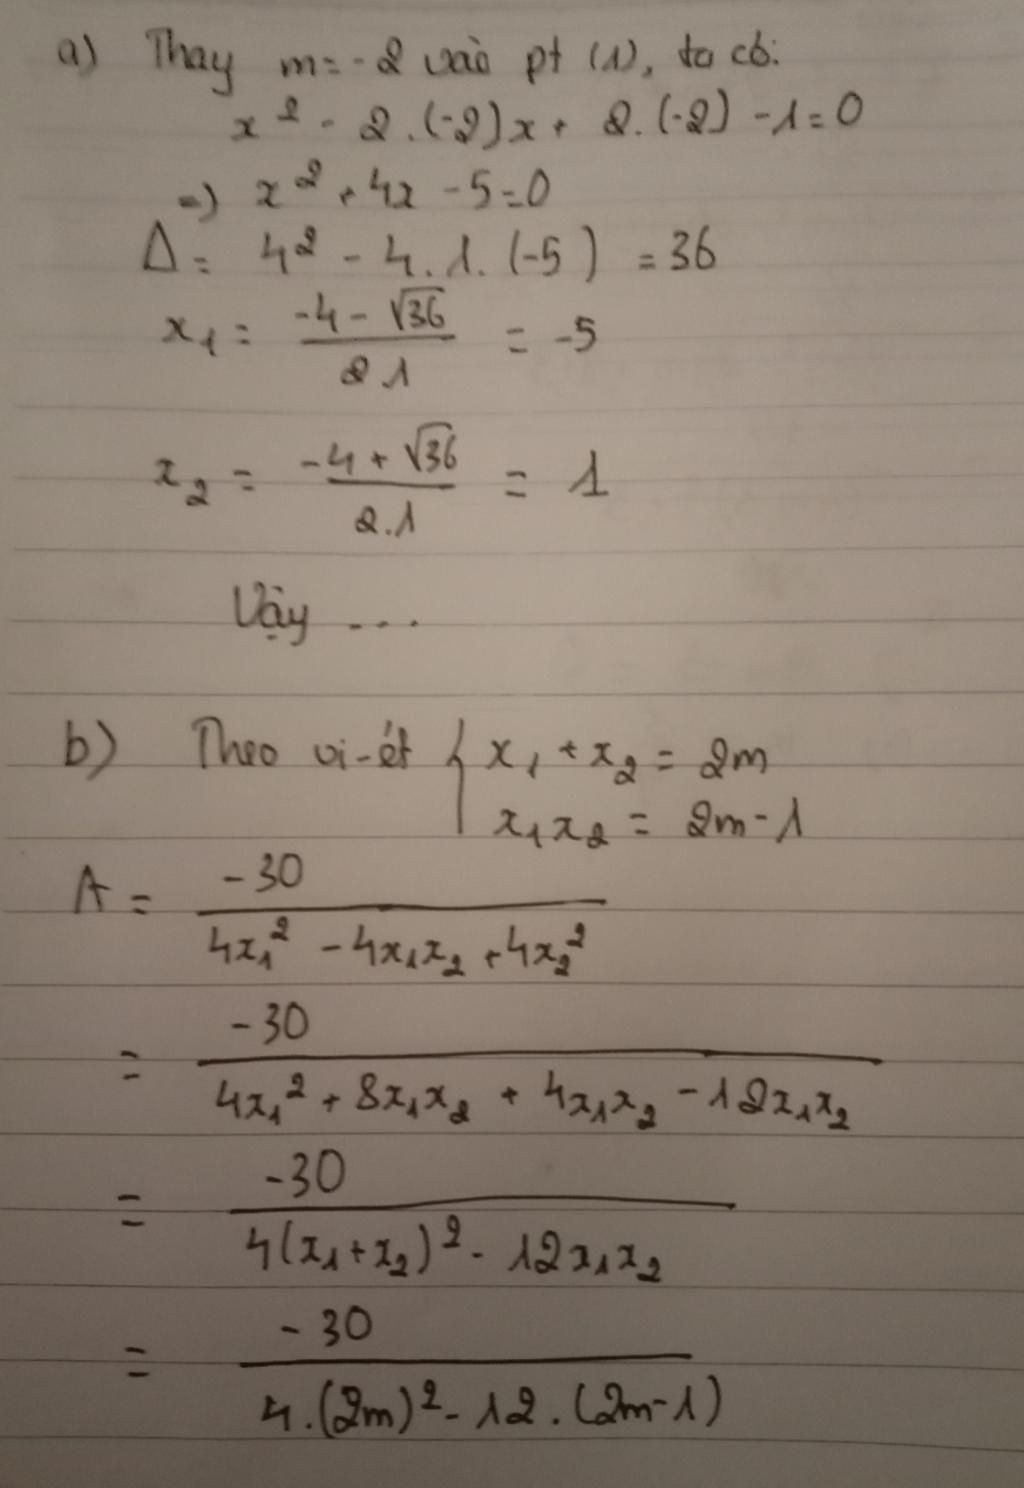 a) Thay m = -2 vào pt (1), ta có:
x² - 2.(-2)x + 2.(-2) - 1 = 0
=) x² + 4x - 5 = 0
Δ = 4² - 4.1.(-5) = 36
x₁ = (-4 - √36) / (2 1) = -5
x₂ = (-4 + √36) / (2.1) = 1
Vậy ...
b) Theo vi-ét { x₁ + x₂ = 2m
x₁x₂ = 2m - 1
A = -30 / (4x₁² - 4x₁x₂ + 4x₂²)
= -30 / (4x₁² + 8x₁x₂ + 4x₁x₂ - 12x₁x₂)
= -30 / (4(x₁ + x₂)² - 12x₁x₂)
= -30 / (4.(2m)² - 12.(2m - 1))